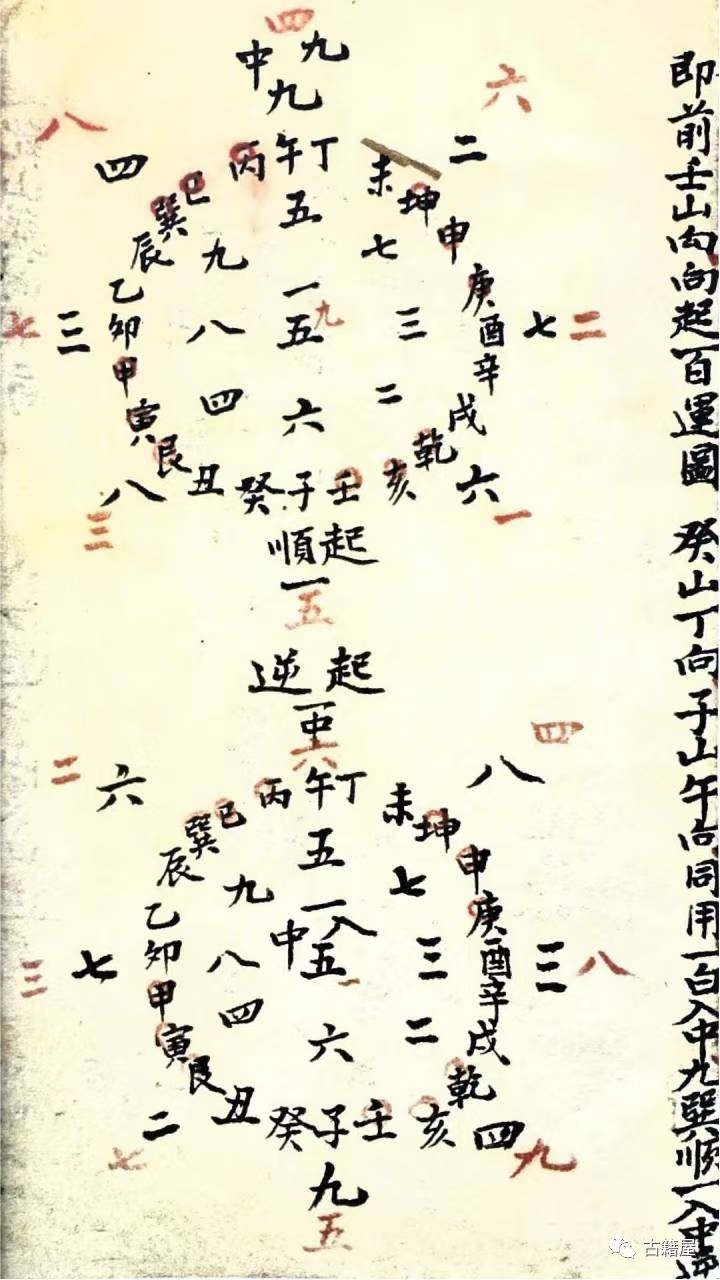 即前壬山丙向起一白運圖 癸山丁向子山午向同用一白入中九巽順一入中逆
四
中九
九
六
八
四
二
辰巽巳
丙午丁
未坤申
五
九
七
七
三
甲卯乙
八
一
五
九
三
庚酉辛
七
二
四
六
二
寅艮丑
癸子壬
亥乾戌
八
三
六
一
順起
一
五
逆起
一中
六
四
二
六
八
辰巽巳
丙午丁
未坤申
五
九
七
三
七
甲卯乙
八
一入
中五
一
三
庚酉辛
三
八
四
六
二
寅艮丑
癸子壬
亥乾戌
二
七
四
九
九
五
古籍屋